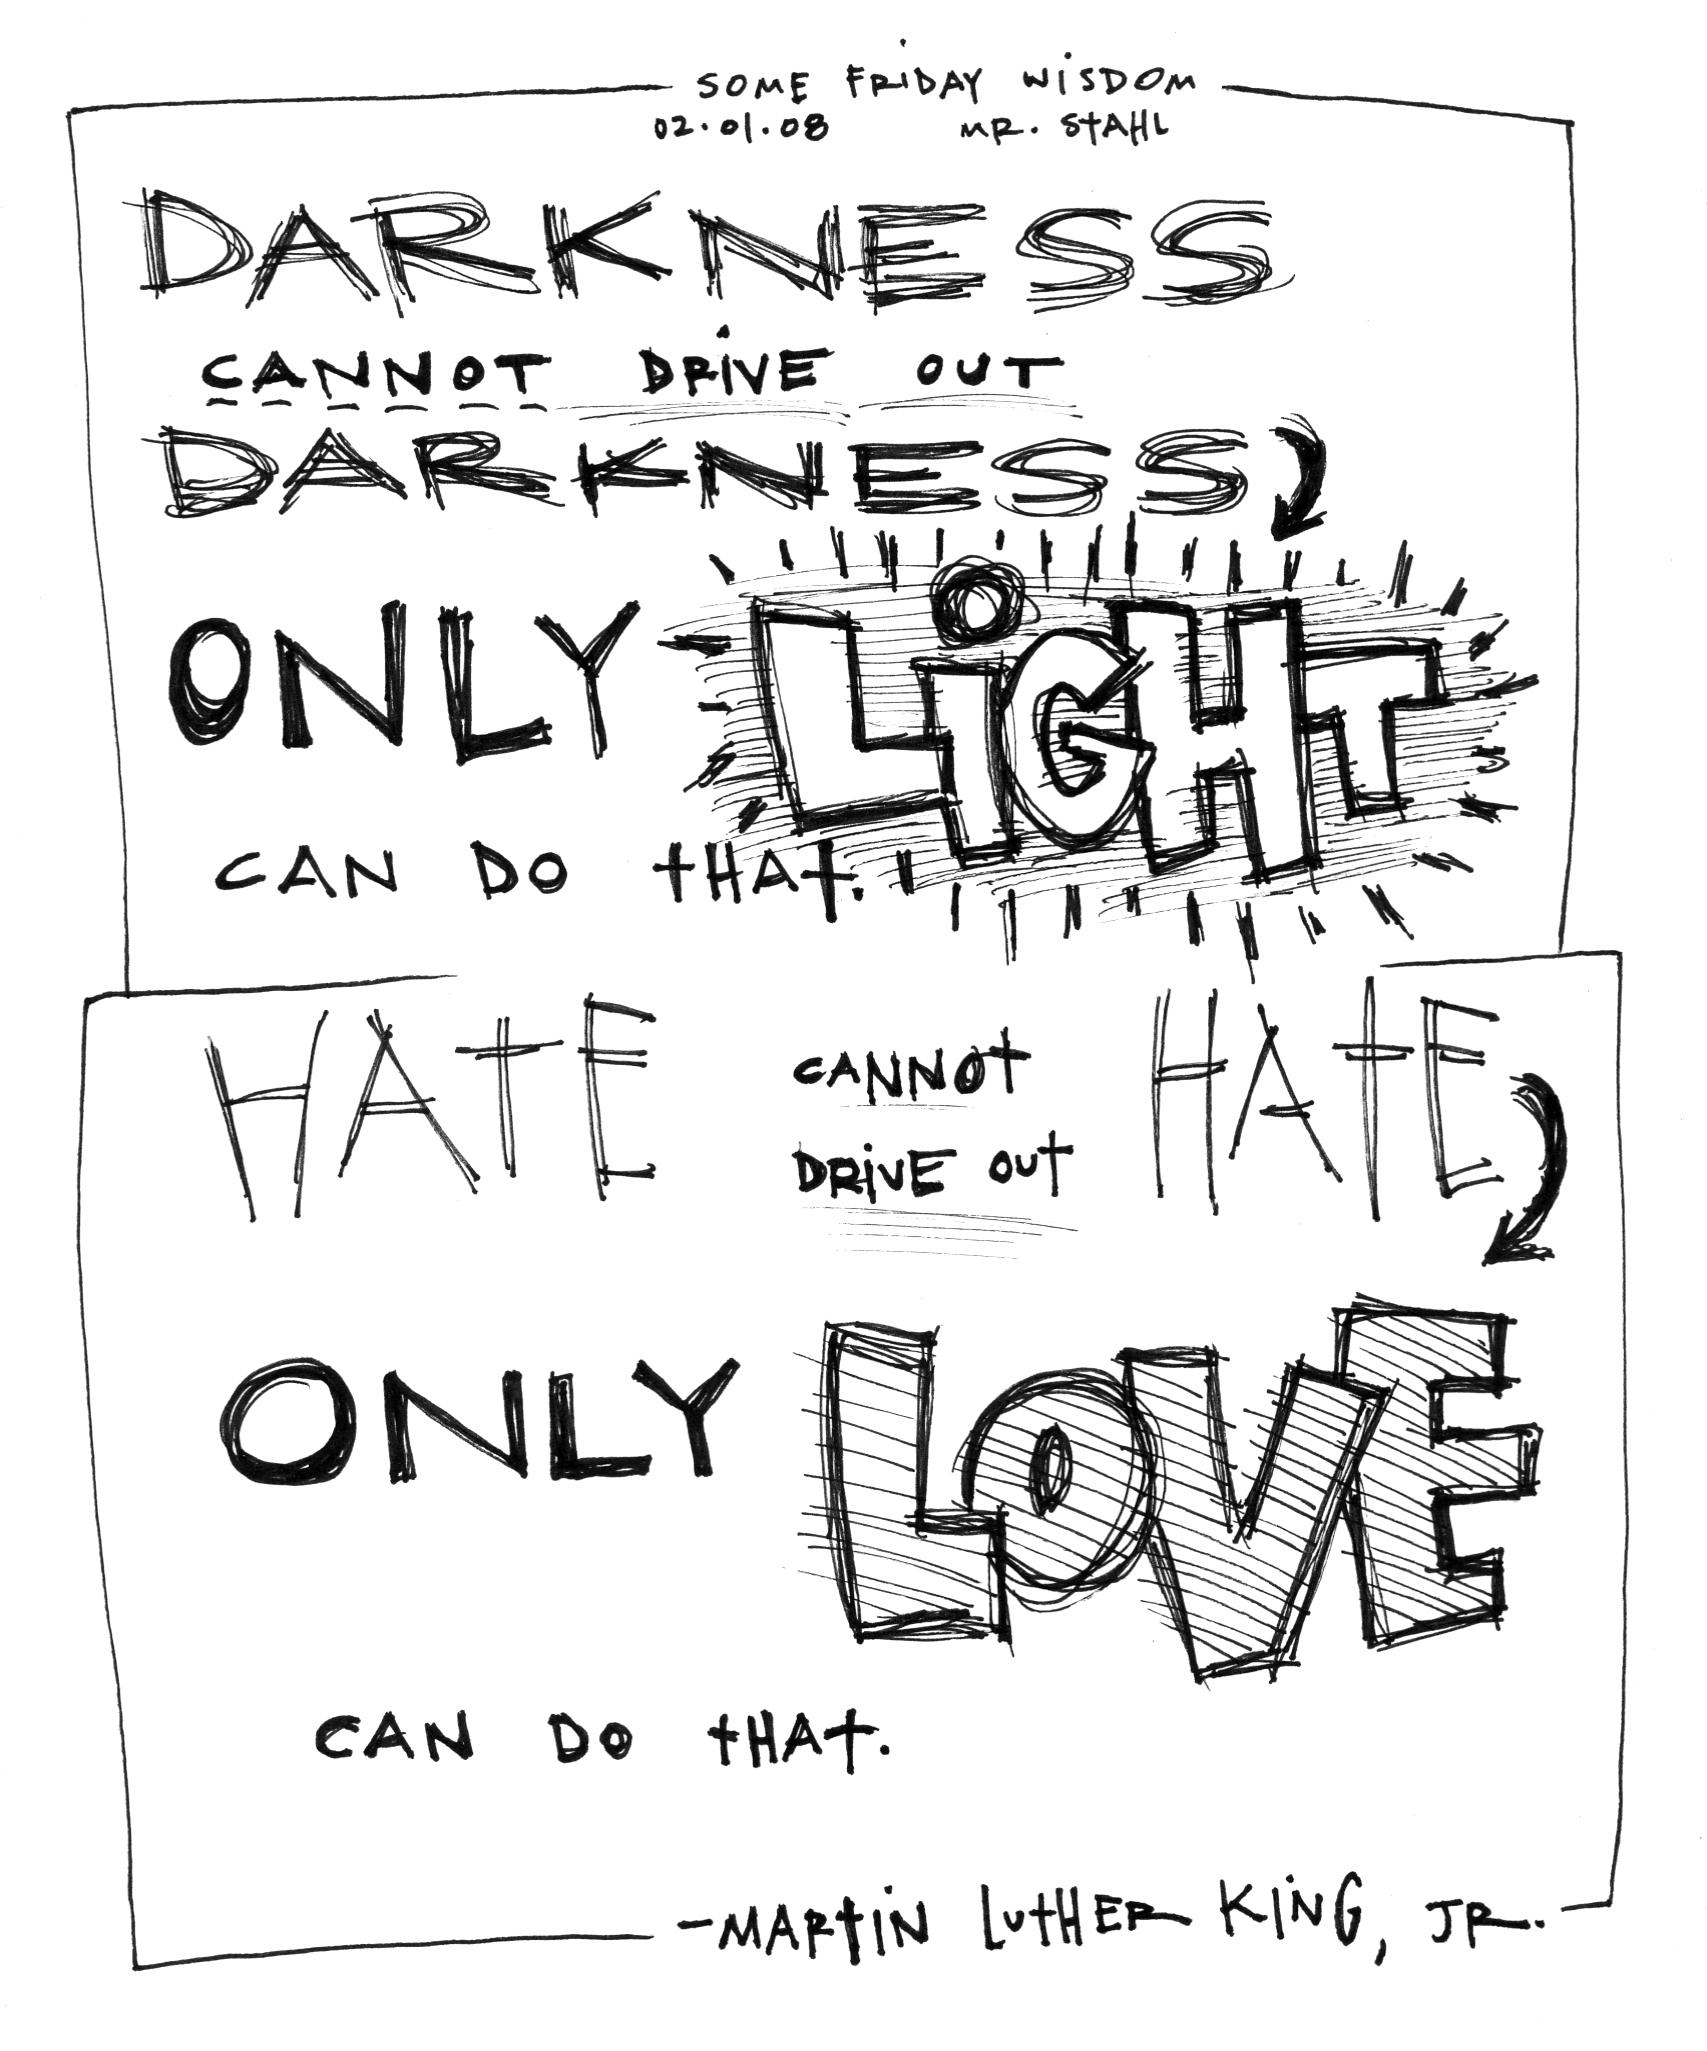 SOME FRiDAY WiSDOM
02.01.08 MR. StAHL
DARKNESS
CANNOT DRiVE OUT
DARKNESS
ONLY LiGHT
CAN DO tHAt.
HAtE CANNOt HAtE
DRiVE OUt
ONLY LOVE
CAN DO tHAt.
-MARtiN LUtHER KiNG, JR.